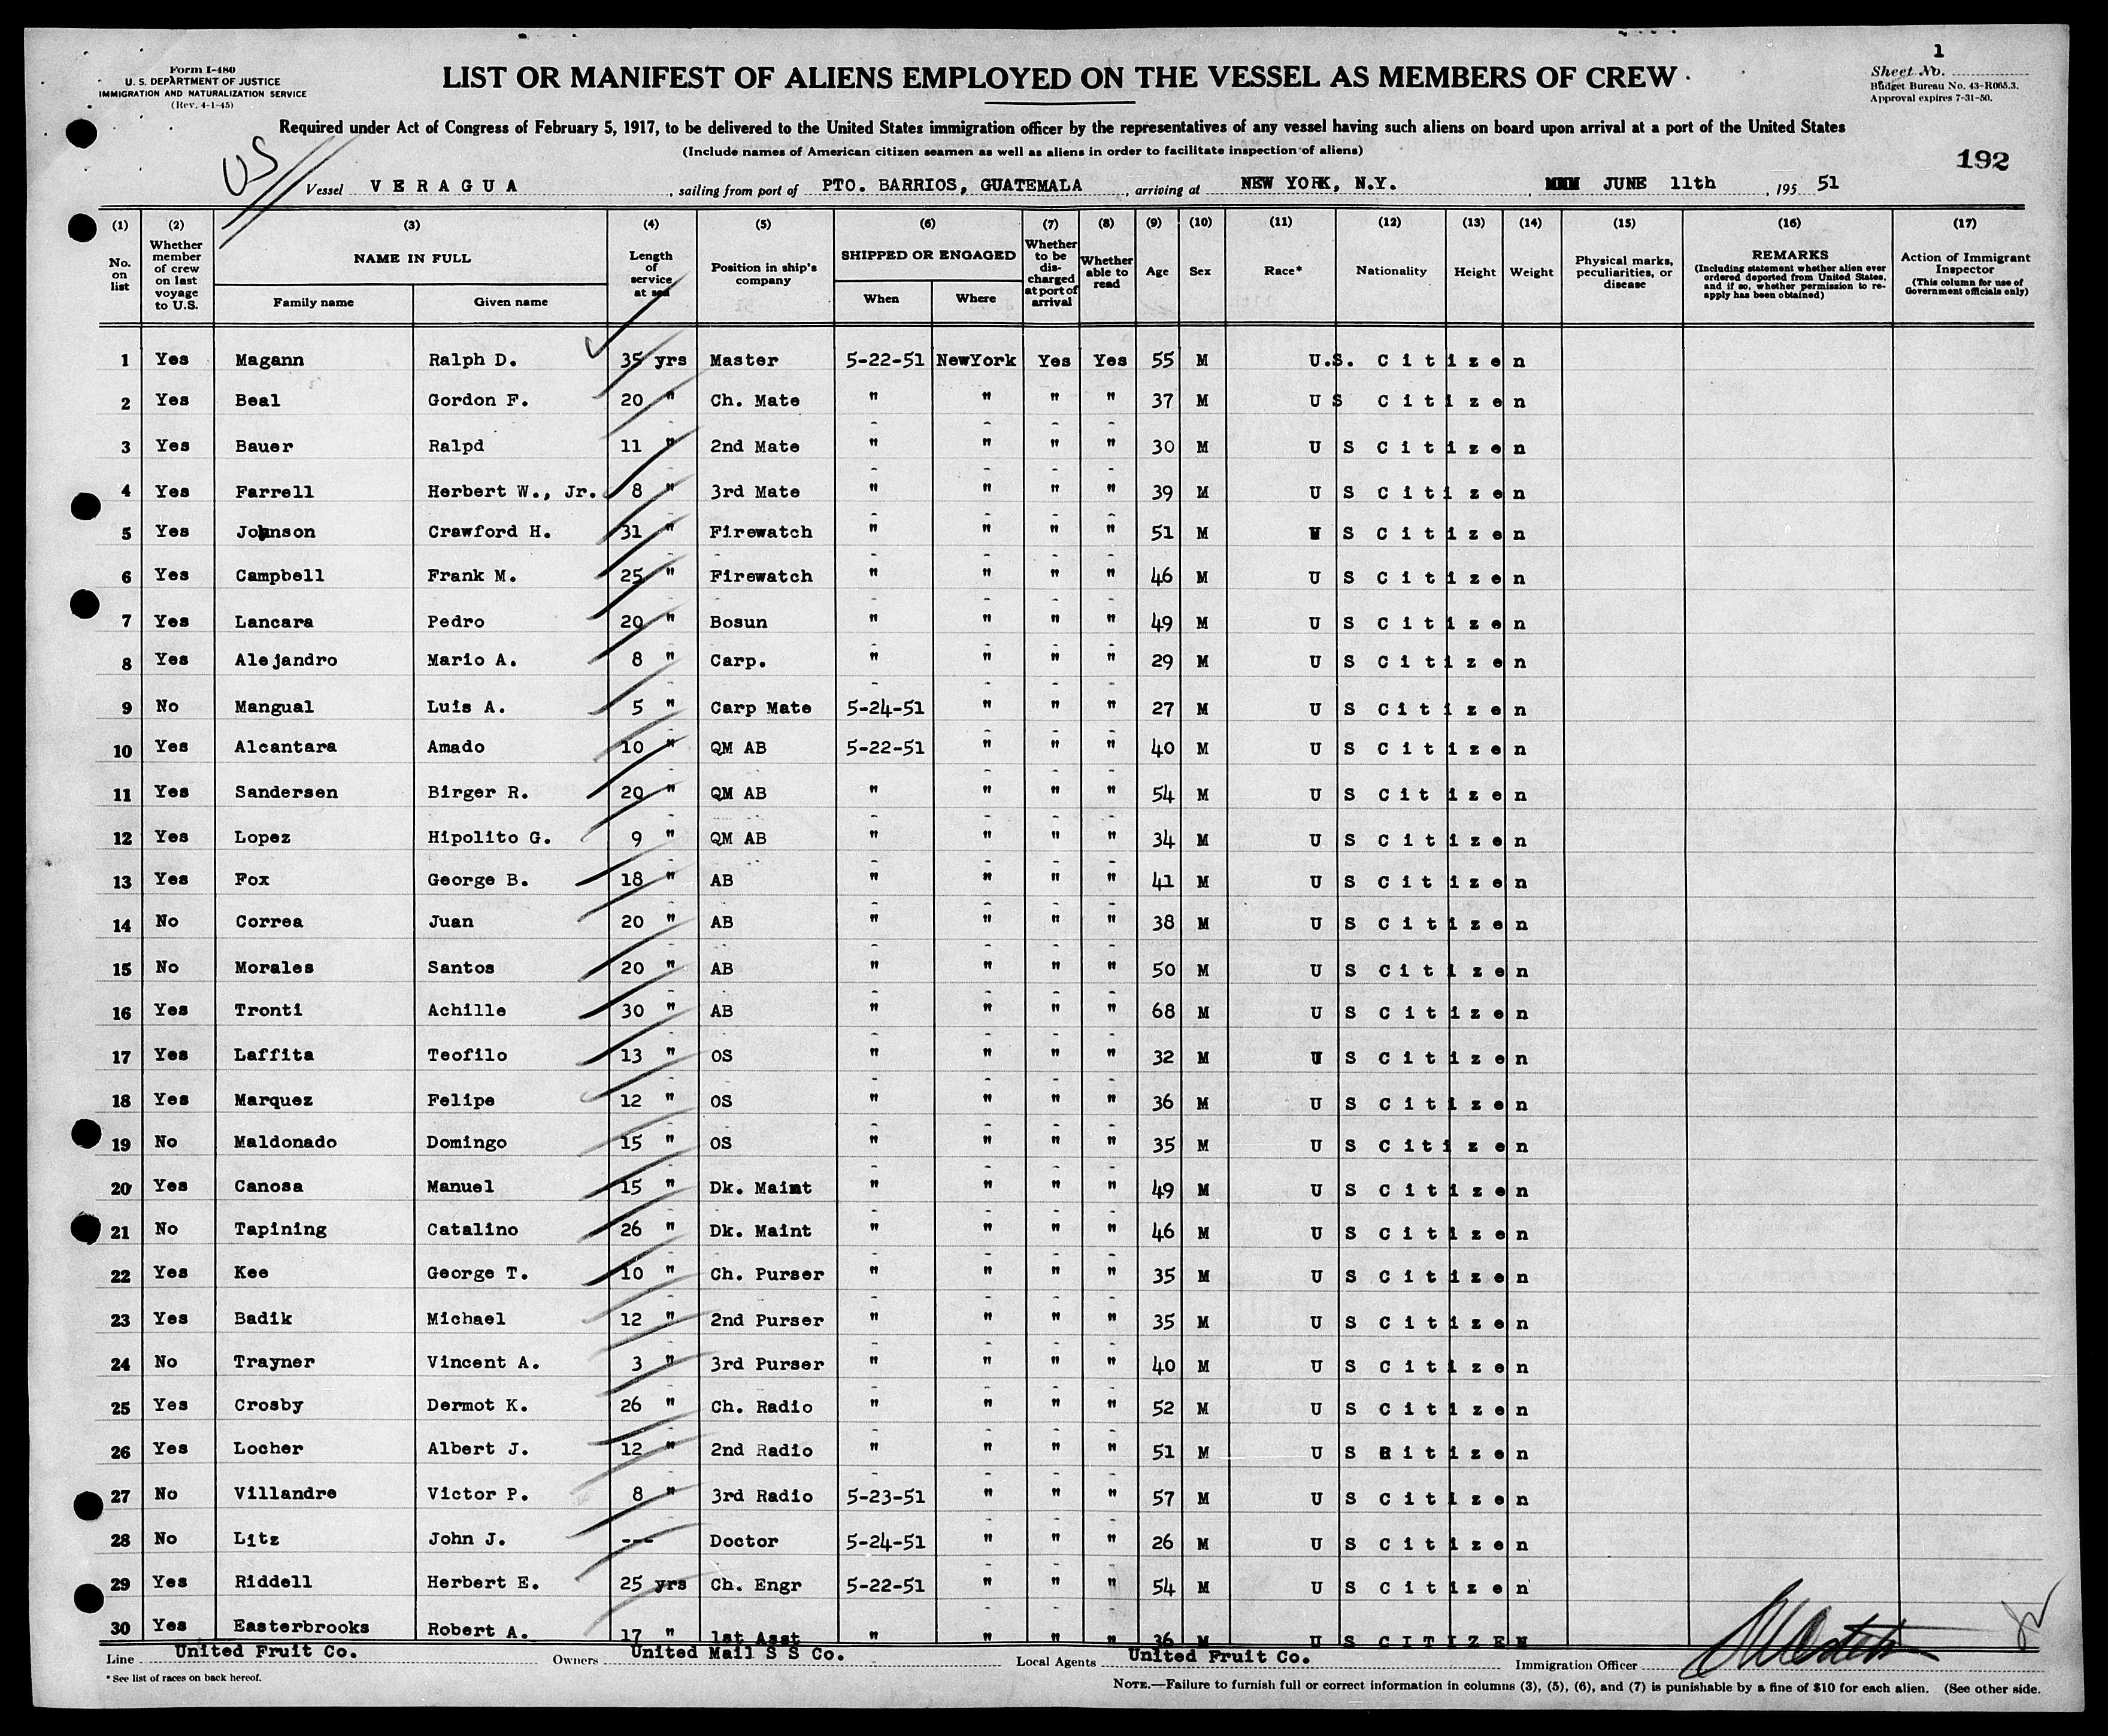 1
Form I-480
U. S. DEPARTMENT OF JUSTICE
IMMIGRATION AND NATURALIZATION SERVICE
(Rev. 4-1-45)
LIST OR MANIFEST OF ALIENS EMPLOYED ON THE VESSEL AS MEMBERS OF CREW
Sheet No.
Budget Bureau No. 43-R065.3.
Approval expires 7-31-50.
Required under Act of Congress of February 5, 1917, to be delivered to the United States immigration officer by the representatives of any vessel having such aliens on board upon arrival at a port of the United States
(Include names of American citizen seamen as well as aliens in order to facilitate inspection of aliens)
192
US
Vessel VERAGUA, sailing from port of PTO. BARRIOS, GUATEMALA, arriving at NEW YORK, N.Y., JUNE 11th, 195 51
(1) (2) (3) (4) (5) (6) (7) (8) (9) (10) (11) (12) (13) (14) (15) (16) (17)
No. on list
Whether member of crew on last voyage to U.S.
NAME IN FULL
Family name Given name
Length of service at sea
Position in ship's company
SHIPPED OR ENGAGED
When Where
Whether to be discharged at port of arrival
Whether able to read
Age
Sex
Race*
Nationality
Height
Weight
Physical marks, peculiarities, or disease
REMARKS
(Including statement whether alien ever ordered deported from United States, and if so, whether permission to reapply has been obtained)
Action of Immigrant Inspector
(This column for use of Government officials only)
1 Yes Magann Ralph D. 35 yrs Master 5-22-51 NewYork Yes Yes 55 M U.S. Citizen
2 Yes Beal Gordon F. 20 " Ch. Mate " " " " 37 M U S Citizen
3 Yes Bauer Ralpd 11 " 2nd Mate " " " " 30 M U S Citizen
4 Yes Farrell Herbert W., Jr. 8 " 3rd Mate " " " " 39 M U S Citizen
5 Yes Johnson Crawford H. 31 " Firewatch " " " " 51 M U S Citizen
6 Yes Campbell Frank M. 25 " Firewatch " " " " 46 M U S Citizen
7 Yes Lancara Pedro 20 " Bosun " " " " 49 M U S Citizen
8 Yes Alejandro Mario A. 8 " Carp. " " " " 29 M U S Citizen
9 No Mangual Luis A. 5 " Carp Mate 5-24-51 " " " 27 M U S Citizen
10 Yes Alcantara Amado 10 " QM AB 5-22-51 " " " 40 M U S Citizen
11 Yes Sandersen Birger R. 20 " QM AB " " " " 54 M U S Citizen
12 Yes Lopez Hipolito G. 9 " QM AB " " " " 34 M U S Citizen
13 Yes Fox George B. 18 " AB " " " " 41 M U S Citizen
14 No Correa Juan 20 " AB " " " " 38 M U S Citizen
15 No Morales Santos 20 " AB " " " " 50 M U S Citizen
16 Yes Tronti Achille 30 " AB " " " " 68 M U S Citizen
17 Yes Laffita Teofilo 13 " OS " " " " 32 M U S Citizen
18 Yes Marquez Felipe 12 " OS " " " " 36 M U S Citizen
19 No Maldonado Domingo 15 " OS " " " " 35 M U S Citizen
20 Yes Canosa Manuel 15 " Dk. Maint " " " " 49 M U S Citizen
21 No Tapining Catalino 26 " Dk. Maint " " " " 46 M U S Citizen
22 Yes Kee George T. 10 " Ch. Purser " " " " 35 M U S Citizen
23 Yes Badik Michael 12 " 2nd Purser " " " " 35 M U S Citizen
24 No Trayner Vincent A. 3 " 3rd Purser " " " " 40 M U S Citizen
25 Yes Crosby Dermot K. 26 " Ch. Radio " " " " 52 M U S Citizen
26 Yes Locher Albert J. 12 " 2nd Radio " " " " 51 M U S Citizen
27 No Villandre Victor P. 8 " 3rd Radio 5-23-51 " " " 57 M U S Citizen
28 No Litz John J. --- Doctor 5-24-51 " " " 26 M U S Citizen
29 Yes Riddell Herbert E. 25 yrs Ch. Engr 5-22-51 " " " 54 M U S Citizen
30 Yes Easterbrooks Robert A. 17 " 1st Asst " " " " 36 M U S CITIZEN
Line United Fruit Co. Owners United Mail S S Co. Local Agents United Fruit Co. Immigration Officer
* See list of races on back hereof.
NOTE.—Failure to furnish full or correct information in columns (3), (5), (6), and (7) is punishable by a fine of $10 for each alien. (See other side.